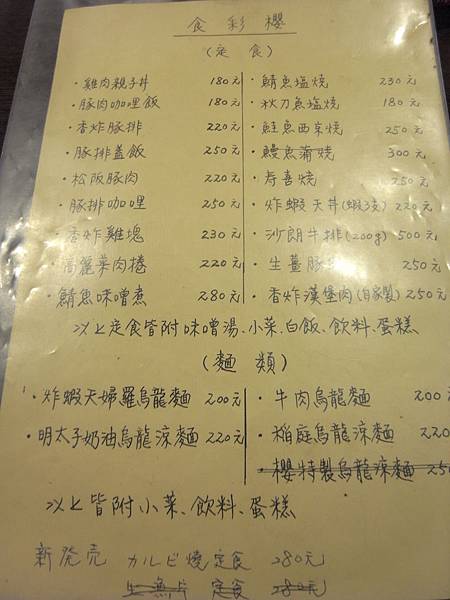 食彩櫻
(定食)
・雞肉親子丼 180元
・豚肉咖哩飯 180元
・香炸豚排 220元
・豚排蓋飯 250元
・松阪豚肉 220元
・豚排咖哩 250元
・香炸雞塊 230元
・高麗菜肉捲 220元
・鯖魚味噌煮 280元
・鯖魚塩燒 230元
・秋刀魚塩燒 180元
・鮭魚西京燒 250元
・鰻魚蒲燒 300元
・寿喜燒 250元
・炸蝦天丼(蝦3支) 220元
・沙朗牛排(200g) 500元
・生薑豚 250元
・香炸漢堡肉(自家製) 250元
以上定食皆附味噌湯、小菜、白飯、飲料、蛋糕
(麵類)
・炸蝦天婦羅烏龍麵 200元
・明太子奶油烏龍涼麵 220元
・牛肉烏龍麵 200元
・稲庭烏龍涼麵 220
・櫻特製烏龍涼麵 250
以上皆附小菜、飲料、蛋糕
新発売 カルビ燒定食 280元
生魚片 定食 280元